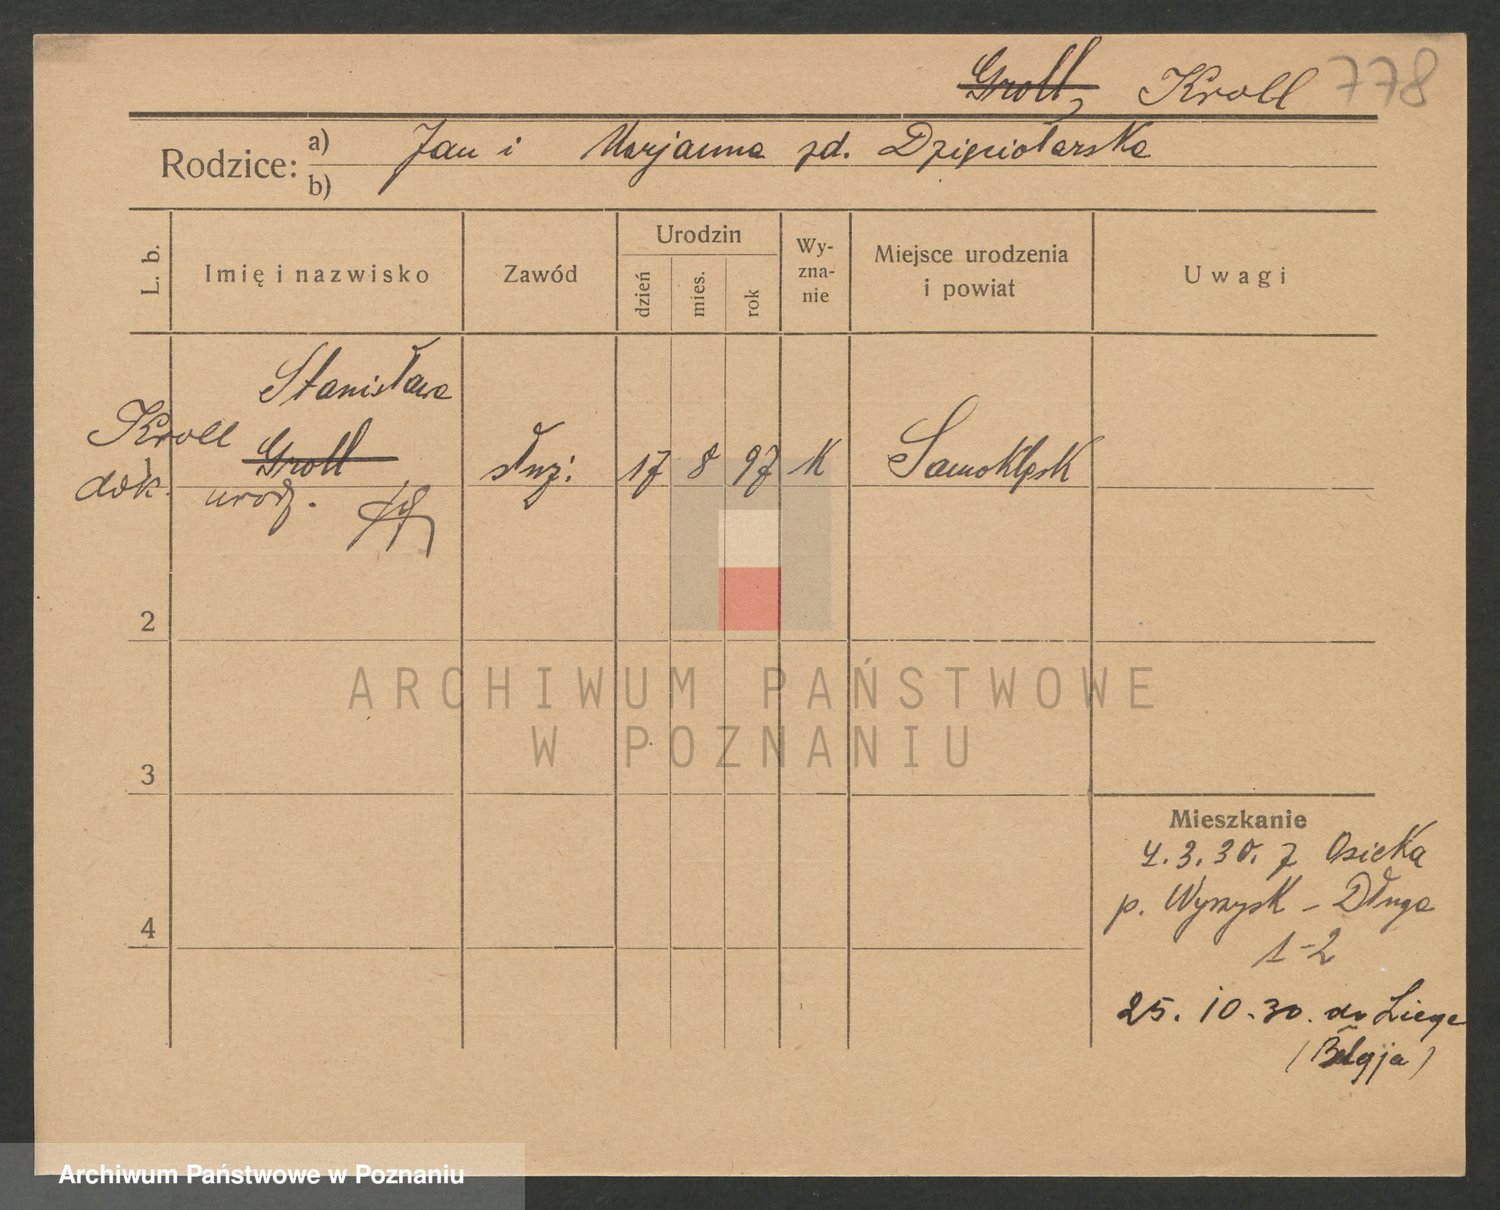 Groll, Kroll 778
Rodzice: a) Jan i Marjanna zd. Dzięciołarska
b)
L. b.
Imię i nazwisko
Zawód
Urodzin
dzień
mies.
rok
Wy-
zna-
nie
Miejsce urodzenia
i powiat
Uwagi
Stanisława
Kroll Groll służ. 17 8 97 K Samoklęsk
1
dok. urodz.
2
3
4
ARCHIWUM PAŃSTWOWE
W POZNANIU
Mieszkanie
4.3.30. z Osieka
p. Wyrzysk - Długa
1-2
25.10.30. do Liege
(Belgja)
Archiwum Państwowe w Poznaniu